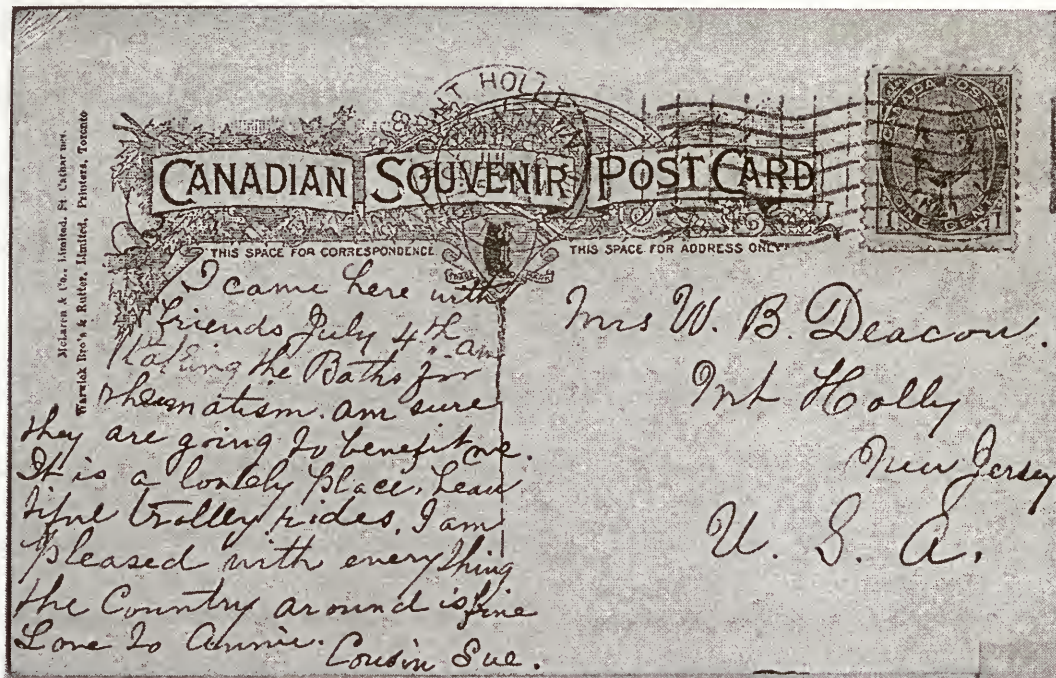 McLaren & Co., Limited, St. Catharines.
Warwick Bro's & Rutter, Limited, Printers, Toronto
MOUNT HOLLY
CANADIAN SOUVENIR POST CARD
THIS SPACE FOR CORRESPONDENCE
THIS SPACE FOR ADDRESS ONLY
ONE CENT
I came here with
friends July 4th am
taking the Baths for
rheumatism. am sure
they are going to benefit me.
It is a lovely place, beau
tiful trolley rides. I am
pleased with everything
the Country around is fine
Love to Annie.
Cousin Sue.
Mrs W. B. Deacon.
Mt Holly
New Jersey
U. S. A.